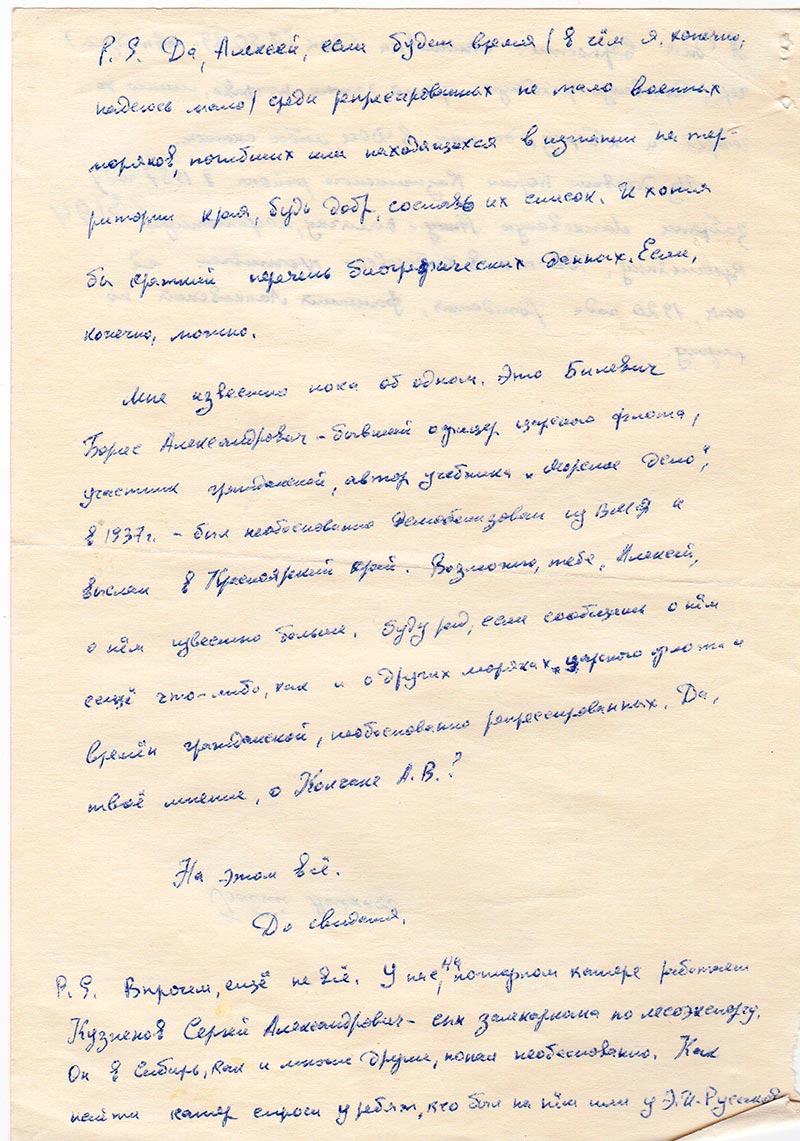 P.S. Да, Алексей, если будет время / в чём я, конечно,
надеюсь мало/ среди репресированных не мало военных
моряков, погибших или находящихся в изгнании на тер-
ритории края, будь добр, составь их список. И хотя
бы краткий перечень биографических данных. Если,
конечно, можно.
Мне известно пока об одном. Это Билевич
Борис Александрович – бывший офицер царского флота,
участник гражданской, автор учебника „Морское дело",
в 1937г. – был необоснованно демобилизован из ВМФ и
выслан в Красноярский край. Возможно, тебе, Алексей,
о нём известно больше. Буду рад, если сообщишь о нём
ещё что-либо, как и о других моряках царского флота и
времён гражданской, необоснованно репрессированных. Да,
твоё мнение, о Колчаке А.В.?
На этом всё.
До свидания.
P.S. Впрочем, ещё не всё. У нас, на пожарном катере работает
Кузнецов Сергей Александрович – сын замнаркома по лесоэкспорту.
Он в Сибирь, как и многие другие, попал необоснованно. Как
найти катер спроси у ребят, кто был на нём или у Э.И. Русской